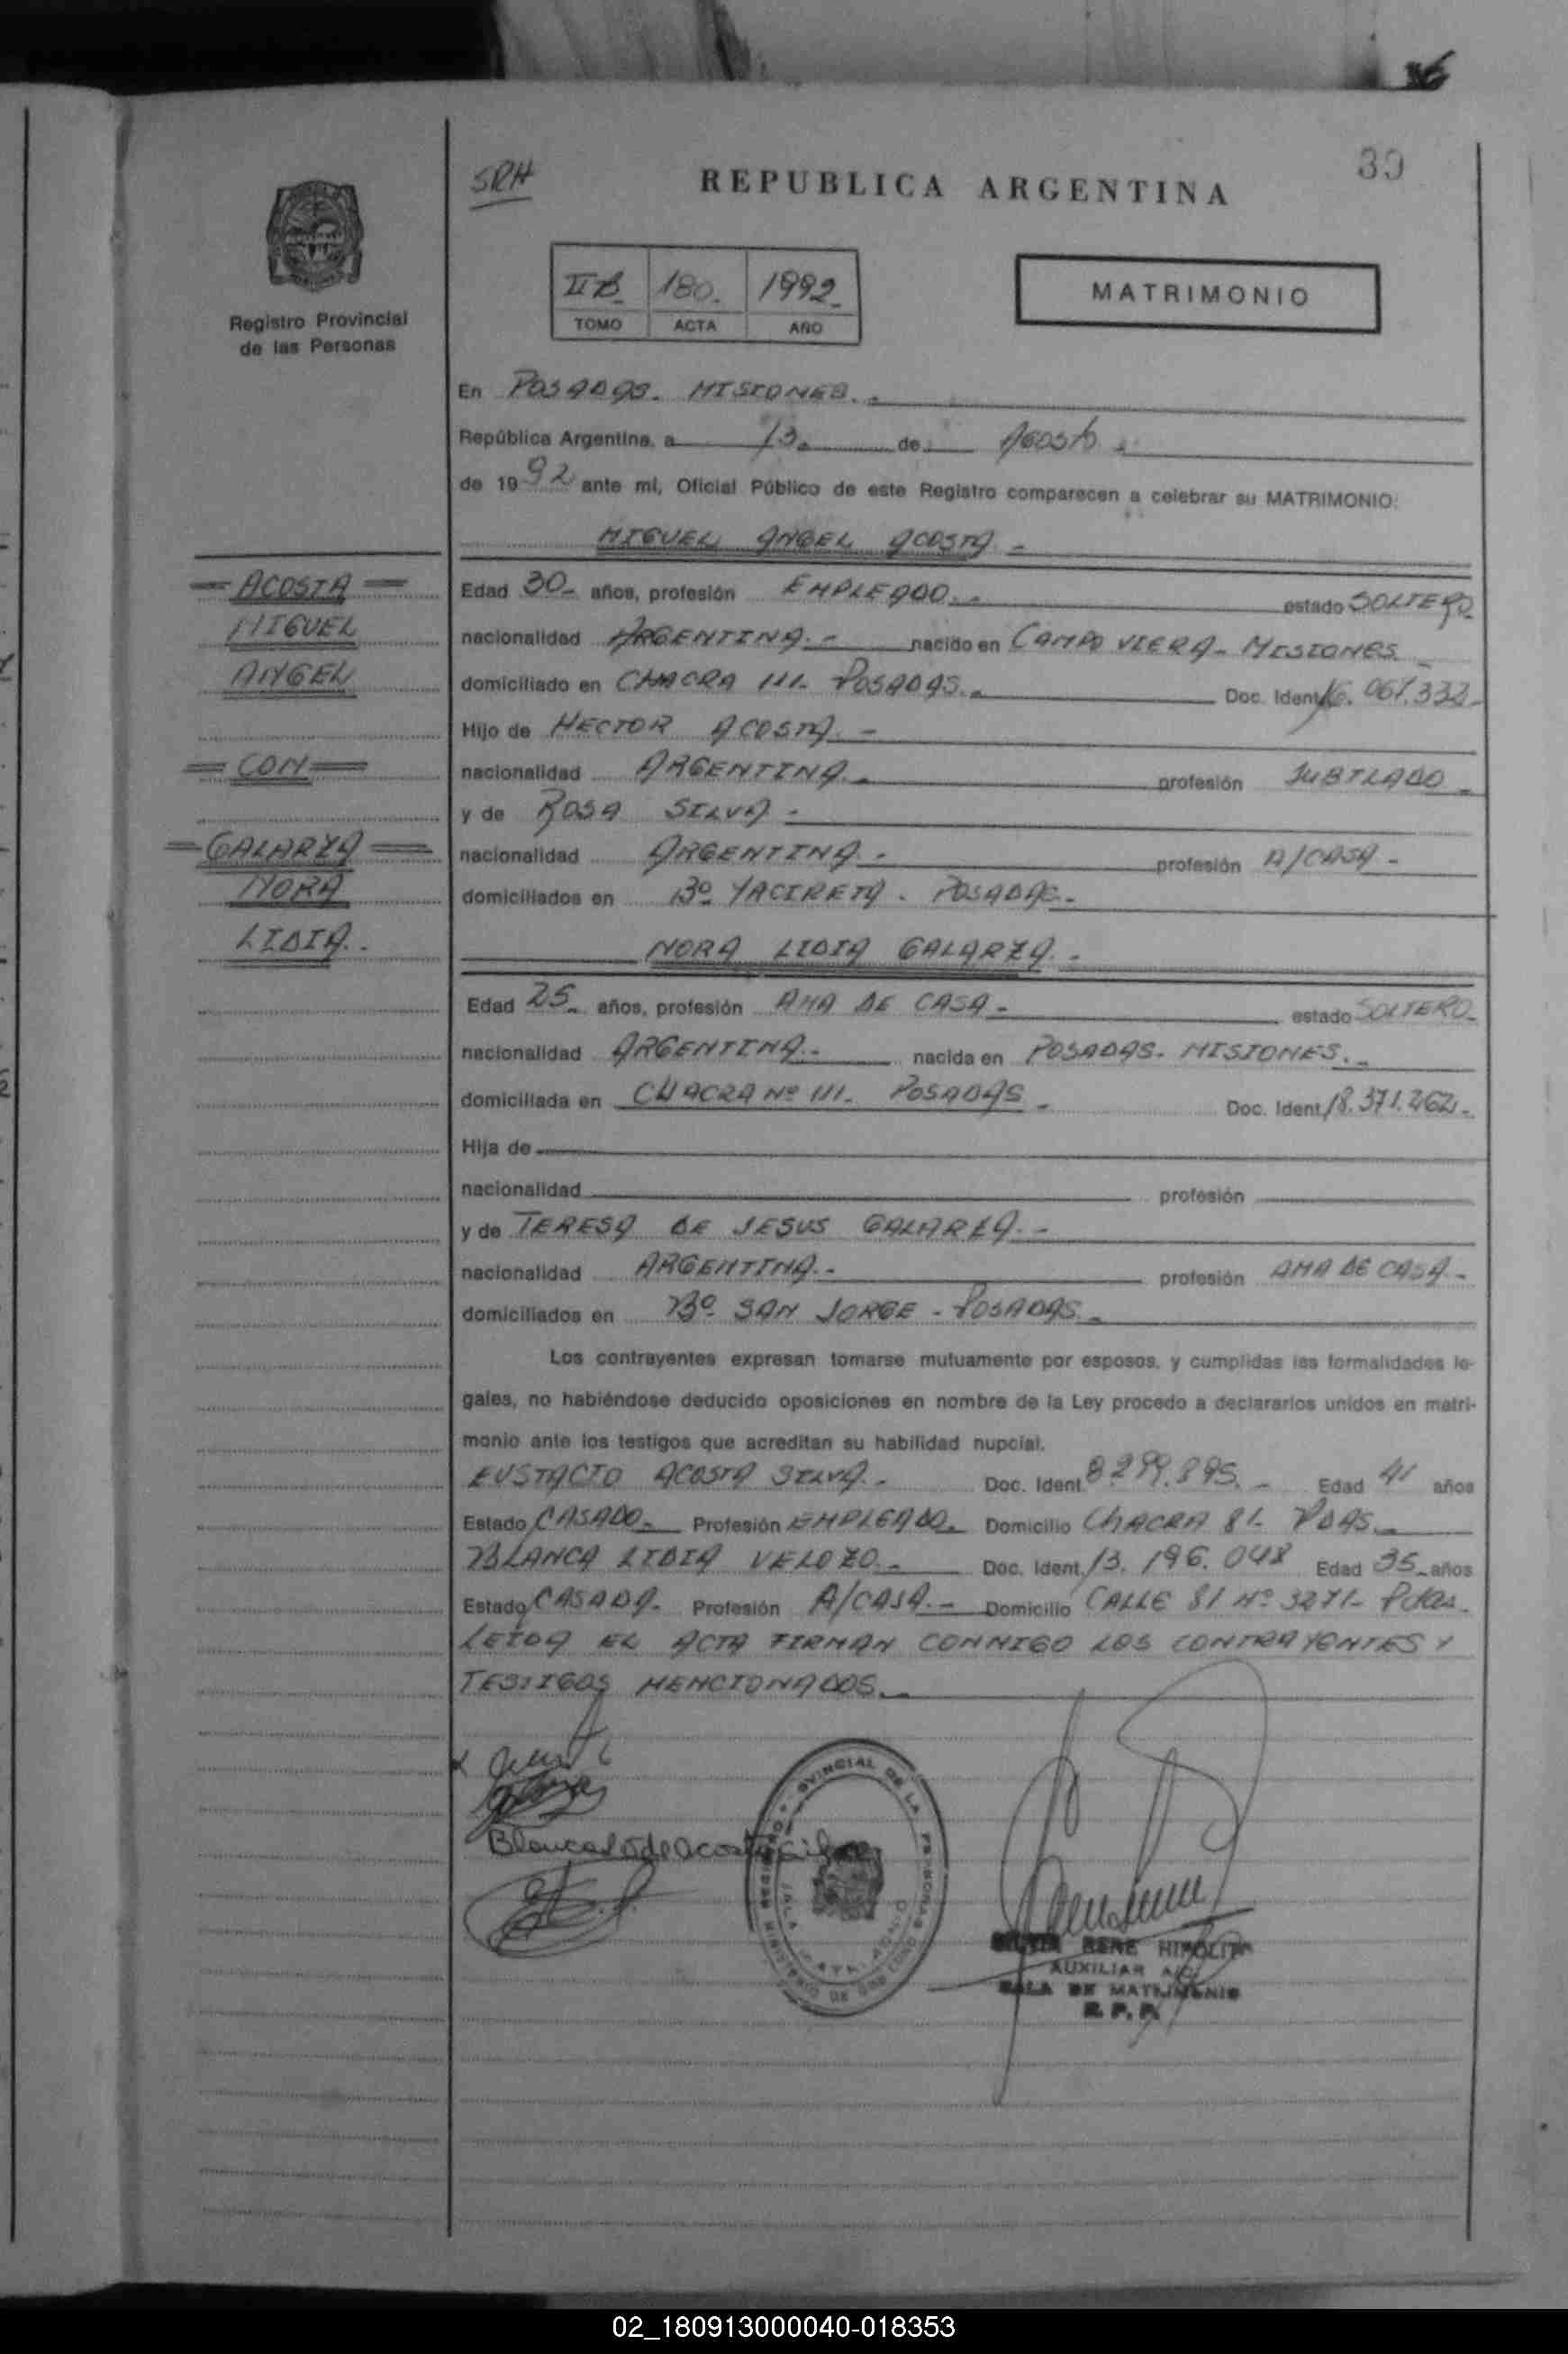 36
39
SRH
REPUBLICA ARGENTINA
Registro Provincial
de las Personas
IIB 180. 1992
TOMO ACTA AÑO
MATRIMONIO
En POSADAS. MISIONES.-
República Argentina, a 13. de Agosto.
de 1992 ante mi, Oficial Público de este Registro comparecen a celebrar su MATRIMONIO:
MIGUEL ANGEL ACOSTA -
= ACOSTA =
MIGUEL
ANGEL
= CON =
= GALARZA =
NORA
LIDIA.
Edad 30- años, profesión EMPLEADO.- estado SOLTERO-
nacionalidad ARGENTINA.- nacido en CAMPO VIERA- MISIONES -
domiciliado en CHACRA 111- POSADAS.- Doc. Ident. 16.067.332-
Hijo de HECTOR ACOSTA.-
nacionalidad ARGENTINA.- profesión JUBILADO -
y de ROSA SILVA -
nacionalidad ARGENTINA.- profesión A/CASA -
domiciliados en Bº YACIRETA - POSADAS.-
NORA LIDIA GALARZA.-
Edad 25- años, profesión AMA DE CASA - estado SOLTERO-
nacionalidad ARGENTINA.- nacida en POSADAS- MISIONES.-
domiciliada en CHACRA Nº 111- POSADAS - Doc. Ident. 18.371.262-
Hija de
nacionalidad profesión
y de TERESA DE JESUS GALARZA.-
nacionalidad ARGENTINA.- profesión AMA DE CASA-
domiciliados en Bº SAN JORGE - POSADAS.-
Los contrayentes expresan tomarse mutuamente por esposos, y cumplidas las formalidades le-
gales, no habiéndose deducido oposiciones en nombre de la Ley procedo a declararlos unidos en matri-
monio ante los testigos que acreditan su habilidad nupcial.
EUSTACIO ACOSTA SILVA.- Doc. Ident. 8.299.895.- Edad 41 años
Estado CASADO- Profesión EMPLEADO. Domicilio CHACRA 81- PDAS.-
BLANCA LIDIA VELOZO.- Doc. Ident. 13.196.048 Edad 35- años
Estado CASADA- Profesión A/CASA.- Domicilio CALLE 81 Nº 3271- Pdas.
LEIDA EL ACTA FIRMAN CONMIGO LOS CONTRAYENTES Y
TESTIGOS MENCIONADOS.-
SILVIA RENE HIPOLITA
AUXILIAR A/C
SALA DE MATRIMONIO
R. P. P.
02_180913000040-018353